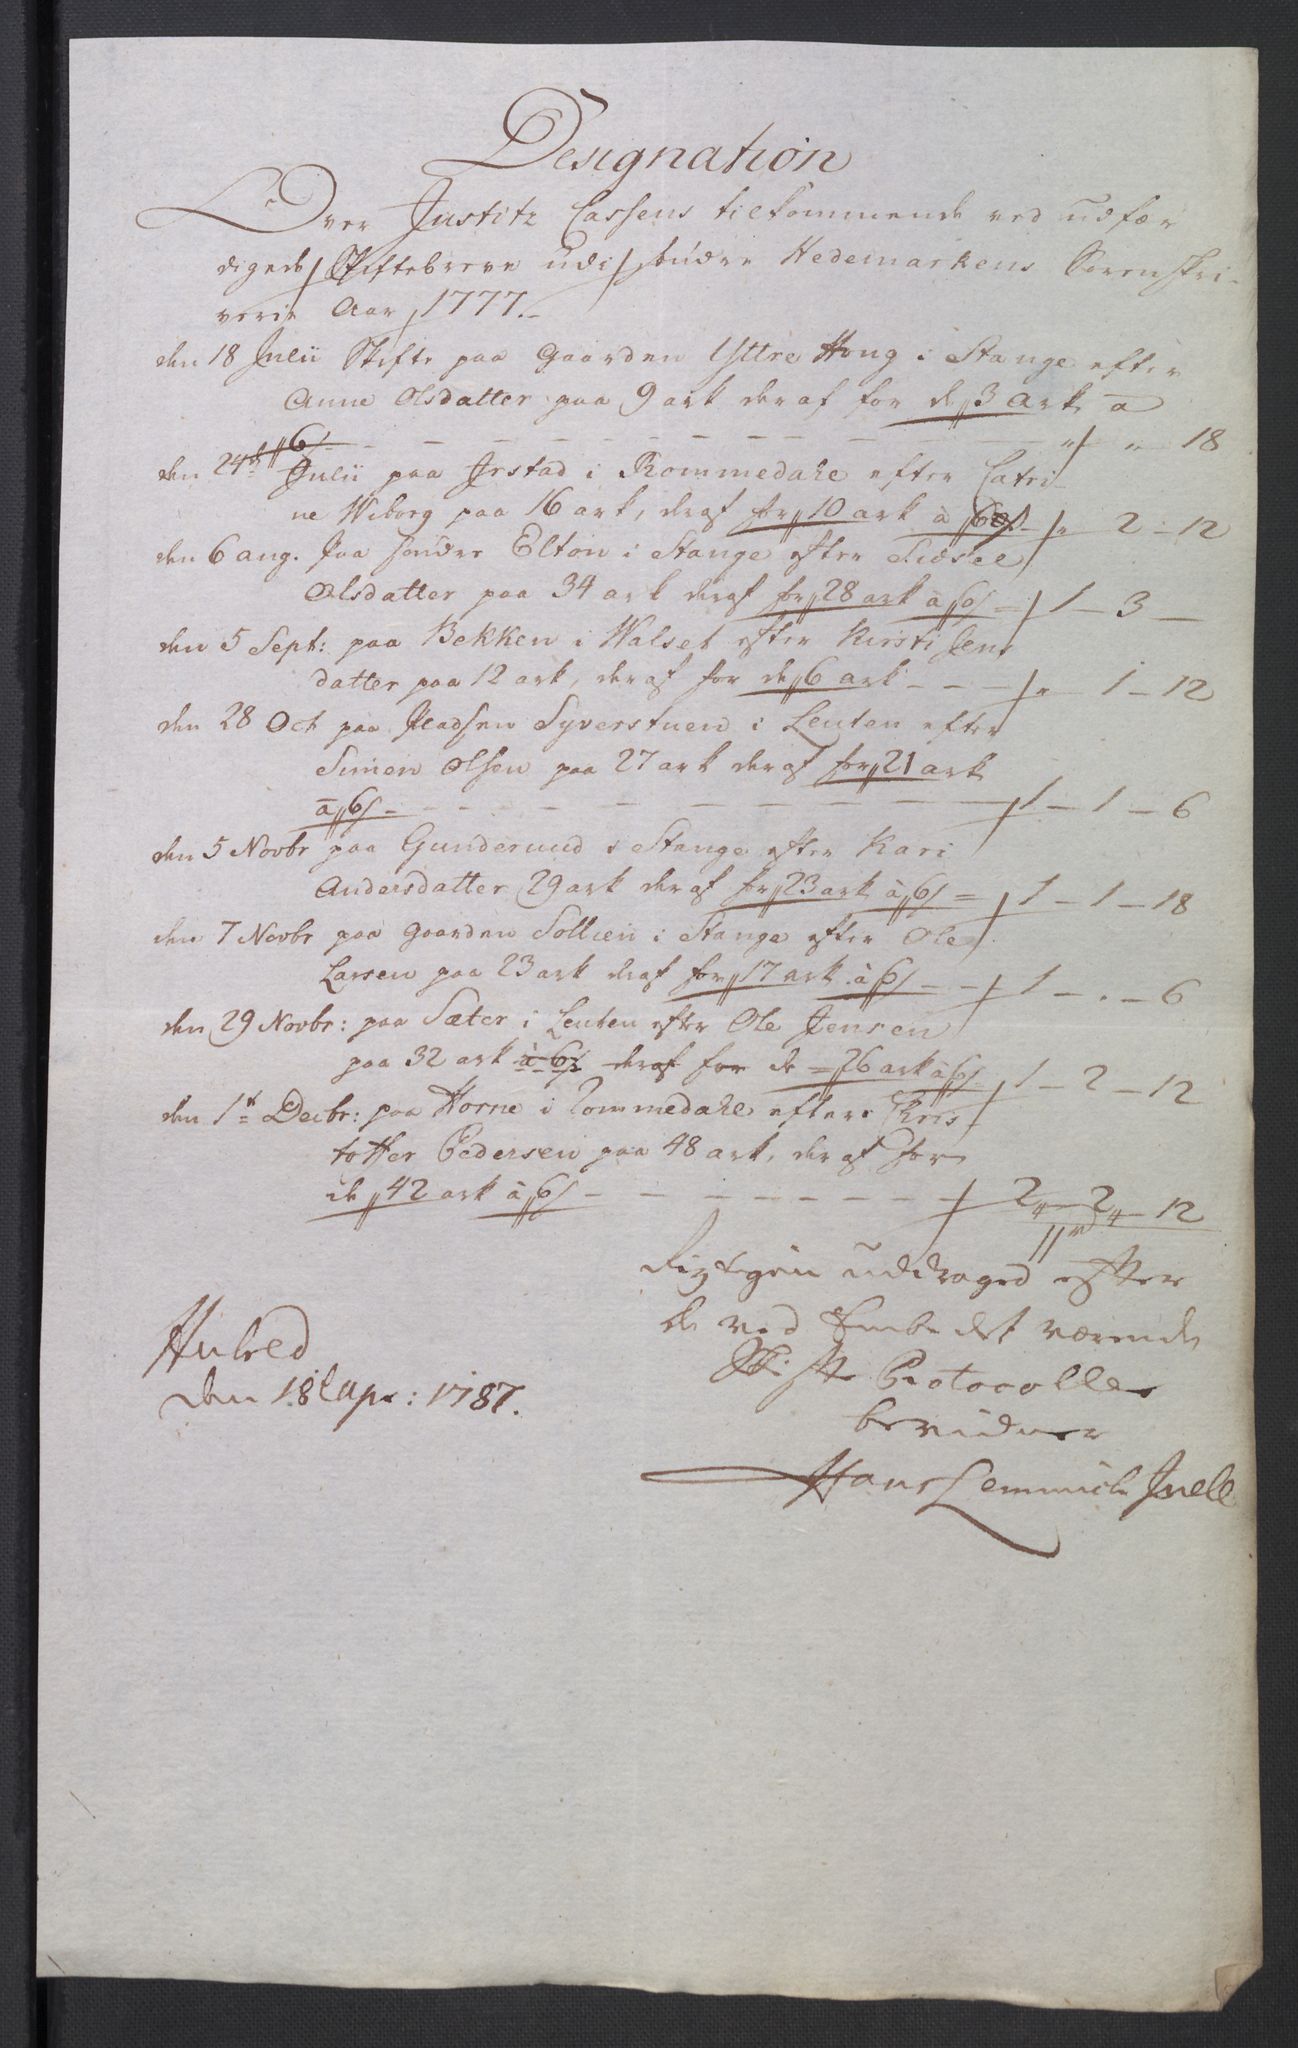 Designation
Over Justitz Cassens tilkommende ved udfær
digede Skiftebreve udi søndre Hedemarkens Sorenskri-
verie Aar 1777.
den 18 Julii Skifte paa Gaarden Yttre Hong i Stange efter
Anne Olsdatter paa 9 ark deraf for de 3 Ark a
6 s - - - - - - - - - - " " 18
den 24de Julii paa Irstad i Rommedahl efter Catri
ne Wiborg paa 16 ark, deraf for 10 ark à 6 s - " 2 - 12
den 6 aug. paa søndre Elton i Stange efter Sidsel
Olsdatter paa 34 ark deraf for 28 ark à 6 s = 1 - 3 -
den 5 Sept: paa Bekken i Walset efter Kirsti Jens
datter paa 12 ark, deraf for de 6 ark - - - " 1 - 12
den 28 Oct paa Pladsen Syverstuen i Leuten efter
Simen Olsen paa 27 ark deraf for 21 ark
à 6 s - - - - - - - - - - 1 - 1 - 6
den 5 Novbr paa Gunderuud i Stange efter Kari
Andersdatter 29 ark deraf for 23 ark à 6 s = 1 - 1 - 18
den 7 Novbr paa Gaarden Sollien i Stange efter Ole
Larsen paa 23 ark deraf for 17 ark à 6 s - - 1 - " - 6
den 29 Novbr: paa Sæter i Leuten efter Ole Jensen
paa 32 ark à 6 s deraf for de 26 ark à 6 s 1 - 2 - 12
den 1te Decbr: paa Horne i Rommedahl efter Chris
toffer Pedersen paa 48 ark, deraf for
de 42 ark à 6 s - - - - - - - 2 - 2 - 12
11 rd
Rigtigen uddraged efter
de ved Embedet værende
Skifte Protocoller
bevidner
Hulred
den 18 Apr: 1787.
Hans Lemmich Juell